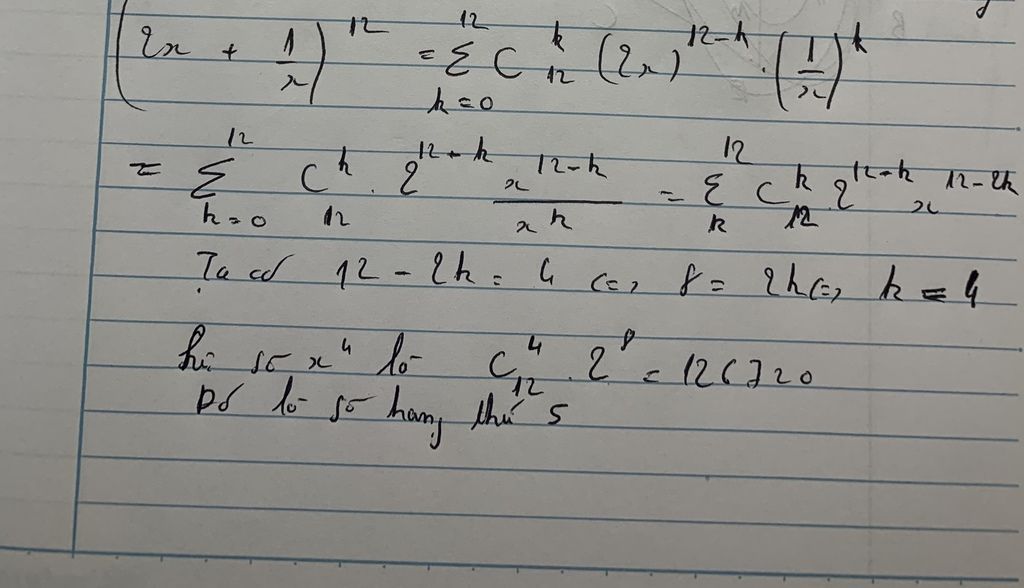 (2x + 1/x)^12 = Σ_{k=0}^{12} C_{12}^{k} (2x)^{12-k} . (1/x)^k
= Σ_{k=0}^{12} C_{12}^{k} . 2^{12-k} x^{12-k}/x^k = Σ_{k}^{12} C_{12}^{k} 2^{12-k} x^{12-2k}
Ta có 12 - 2k = 4 <=> 8 = 2k <=> k = 4
hệ số x^4 là C_{12}^{4} . 2^8 = 126720
Đó là số hạng thứ 5